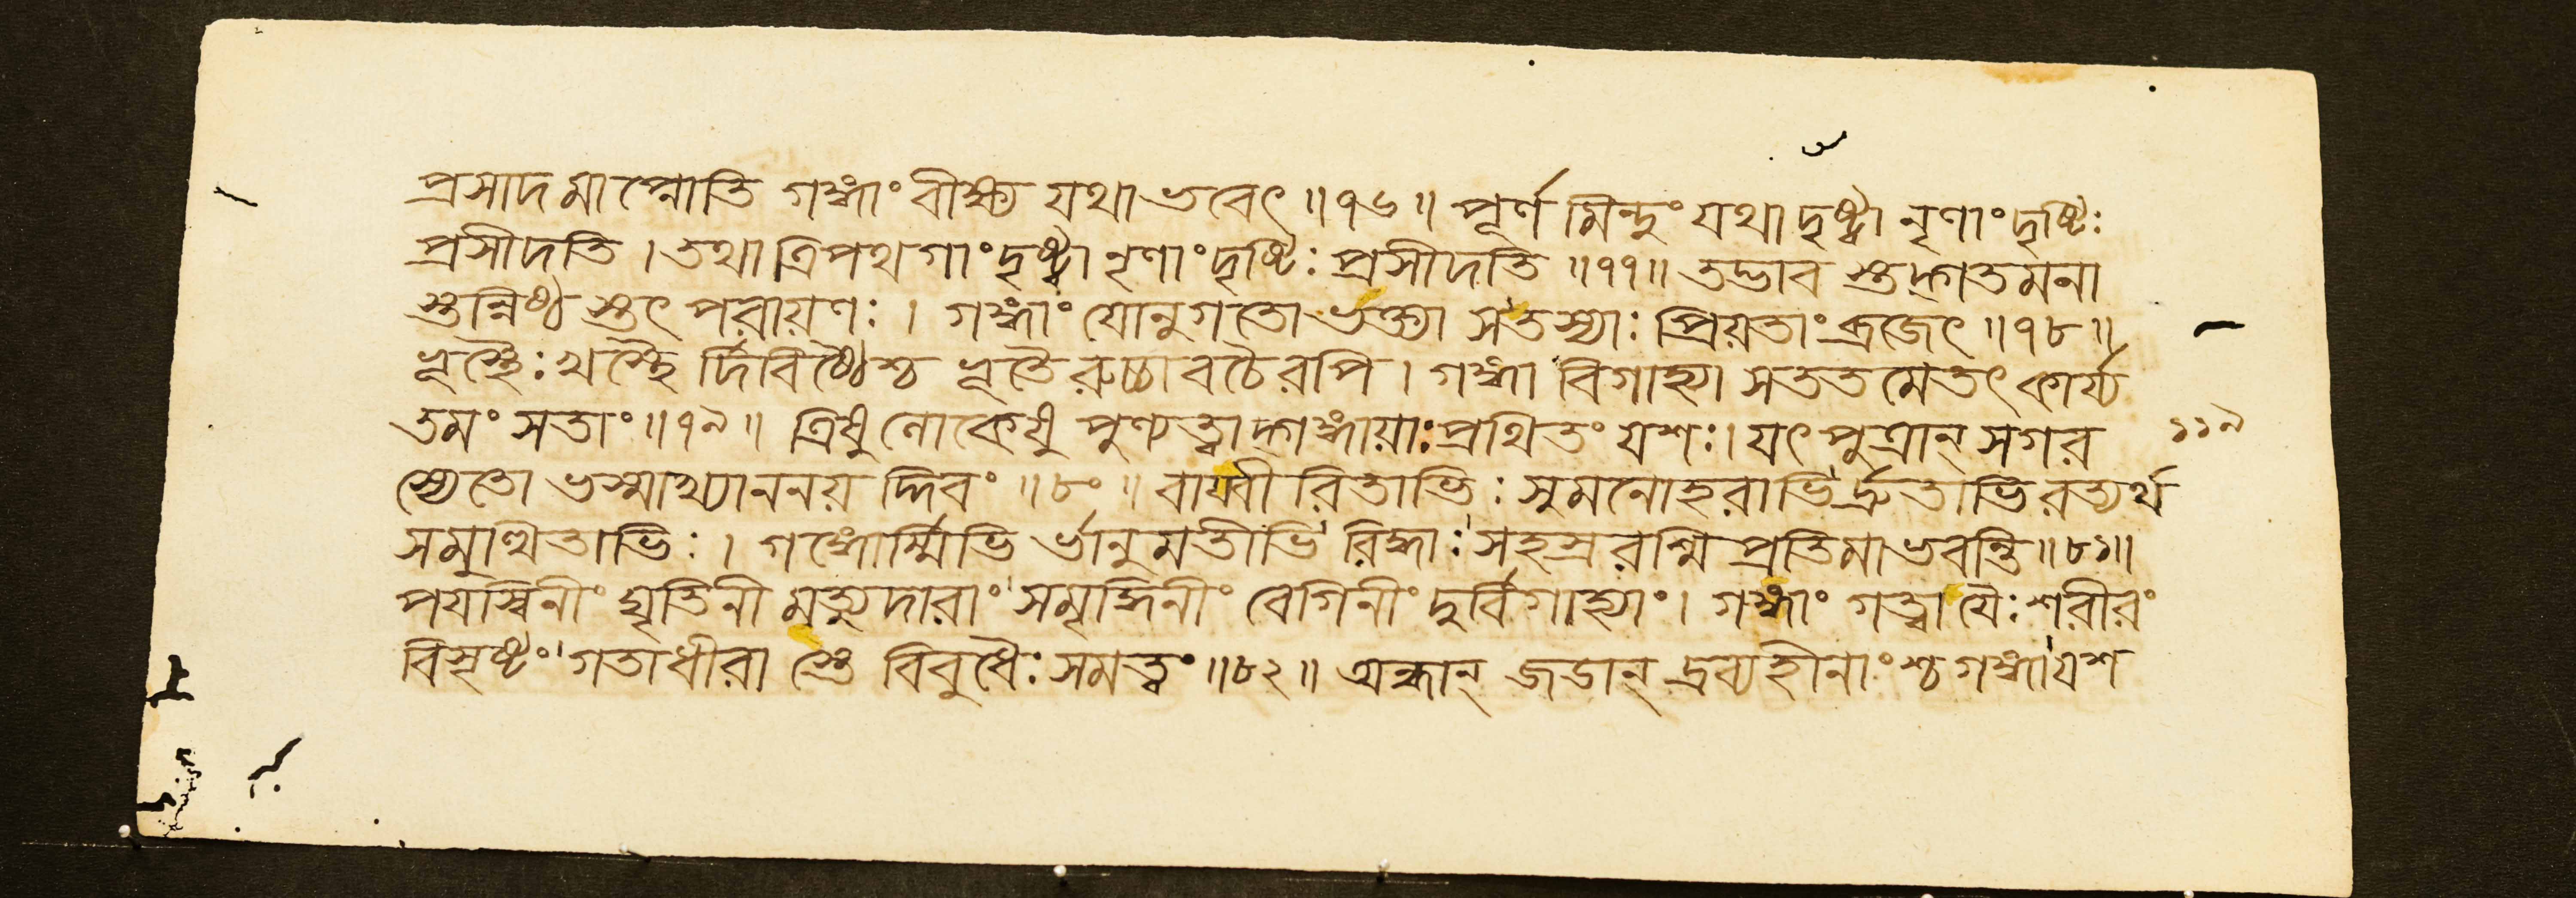 প্রসাদমাপ্নোতি গঙ্গাং বীক্ষ্য যথা ভবেৎ ॥ ৭৬ ॥ পূর্ণমিন্দুং যথা দৃষ্ট্বা নৃণাং দৃষ্টিঃ
প্রসীদতি । তথা ত্রিপথগাং দৃষ্ট্বা নৃণাং দৃষ্টিঃ প্রসীদতি ॥ ৭৭ ॥ তদ্ভাবস্তুদ্গতমনা
স্তন্নিষ্ঠস্তৎপরায়ণঃ । গঙ্গাং যোনুগতো ভক্ত্যা স তস্যাঃ প্রিয়তাং ব্রজেৎ ॥ ৭৮ ॥
ভূস্থৈঃ খস্থৈর্দিবিষ্ঠৈশ্চ ভূতৈরুচ্চাবচৈরপি । গঙ্গা বিগাহ্যা সততমেতৎ কার্য্য
তমং সতাং ॥ ৭৯ ॥ ত্রিষু লোকেষু পুণ্যত্বাদ্গঙ্গায়াঃ প্রথিতং যশঃ । যৎ পুত্রান্ সগর
স্যেতো ভস্মাখ্যাননয়দ্দিবং ॥ ৮০ ॥ বায্বীরিতাভিঃ সুমনোহরাভির্দ্রুতাভিরত্যর্থ
সমুত্থিতাভিঃ । গঙ্গোর্ম্মিভির্ভানুমতীভিরিদ্ধাঃ সহস্ররশ্মিপ্রতিমা ভবন্তি ॥ ৮১ ॥
পযস্বিনীং ঘৃতিনীমত্যুদারাং সমৃদ্ধিনীং বেগিনীং দুর্বিগাহ্যাং । গঙ্গাং গত্বা যৈঃ শরীরং
বিসৃষ্টং গতা ধীরাস্তে বিবুধৈঃ সমত্বং ॥ ৮২ ॥ অন্ধান্ জডান্ দ্রব্যহীনাংশ্চ গঙ্গা যশ
১১৯